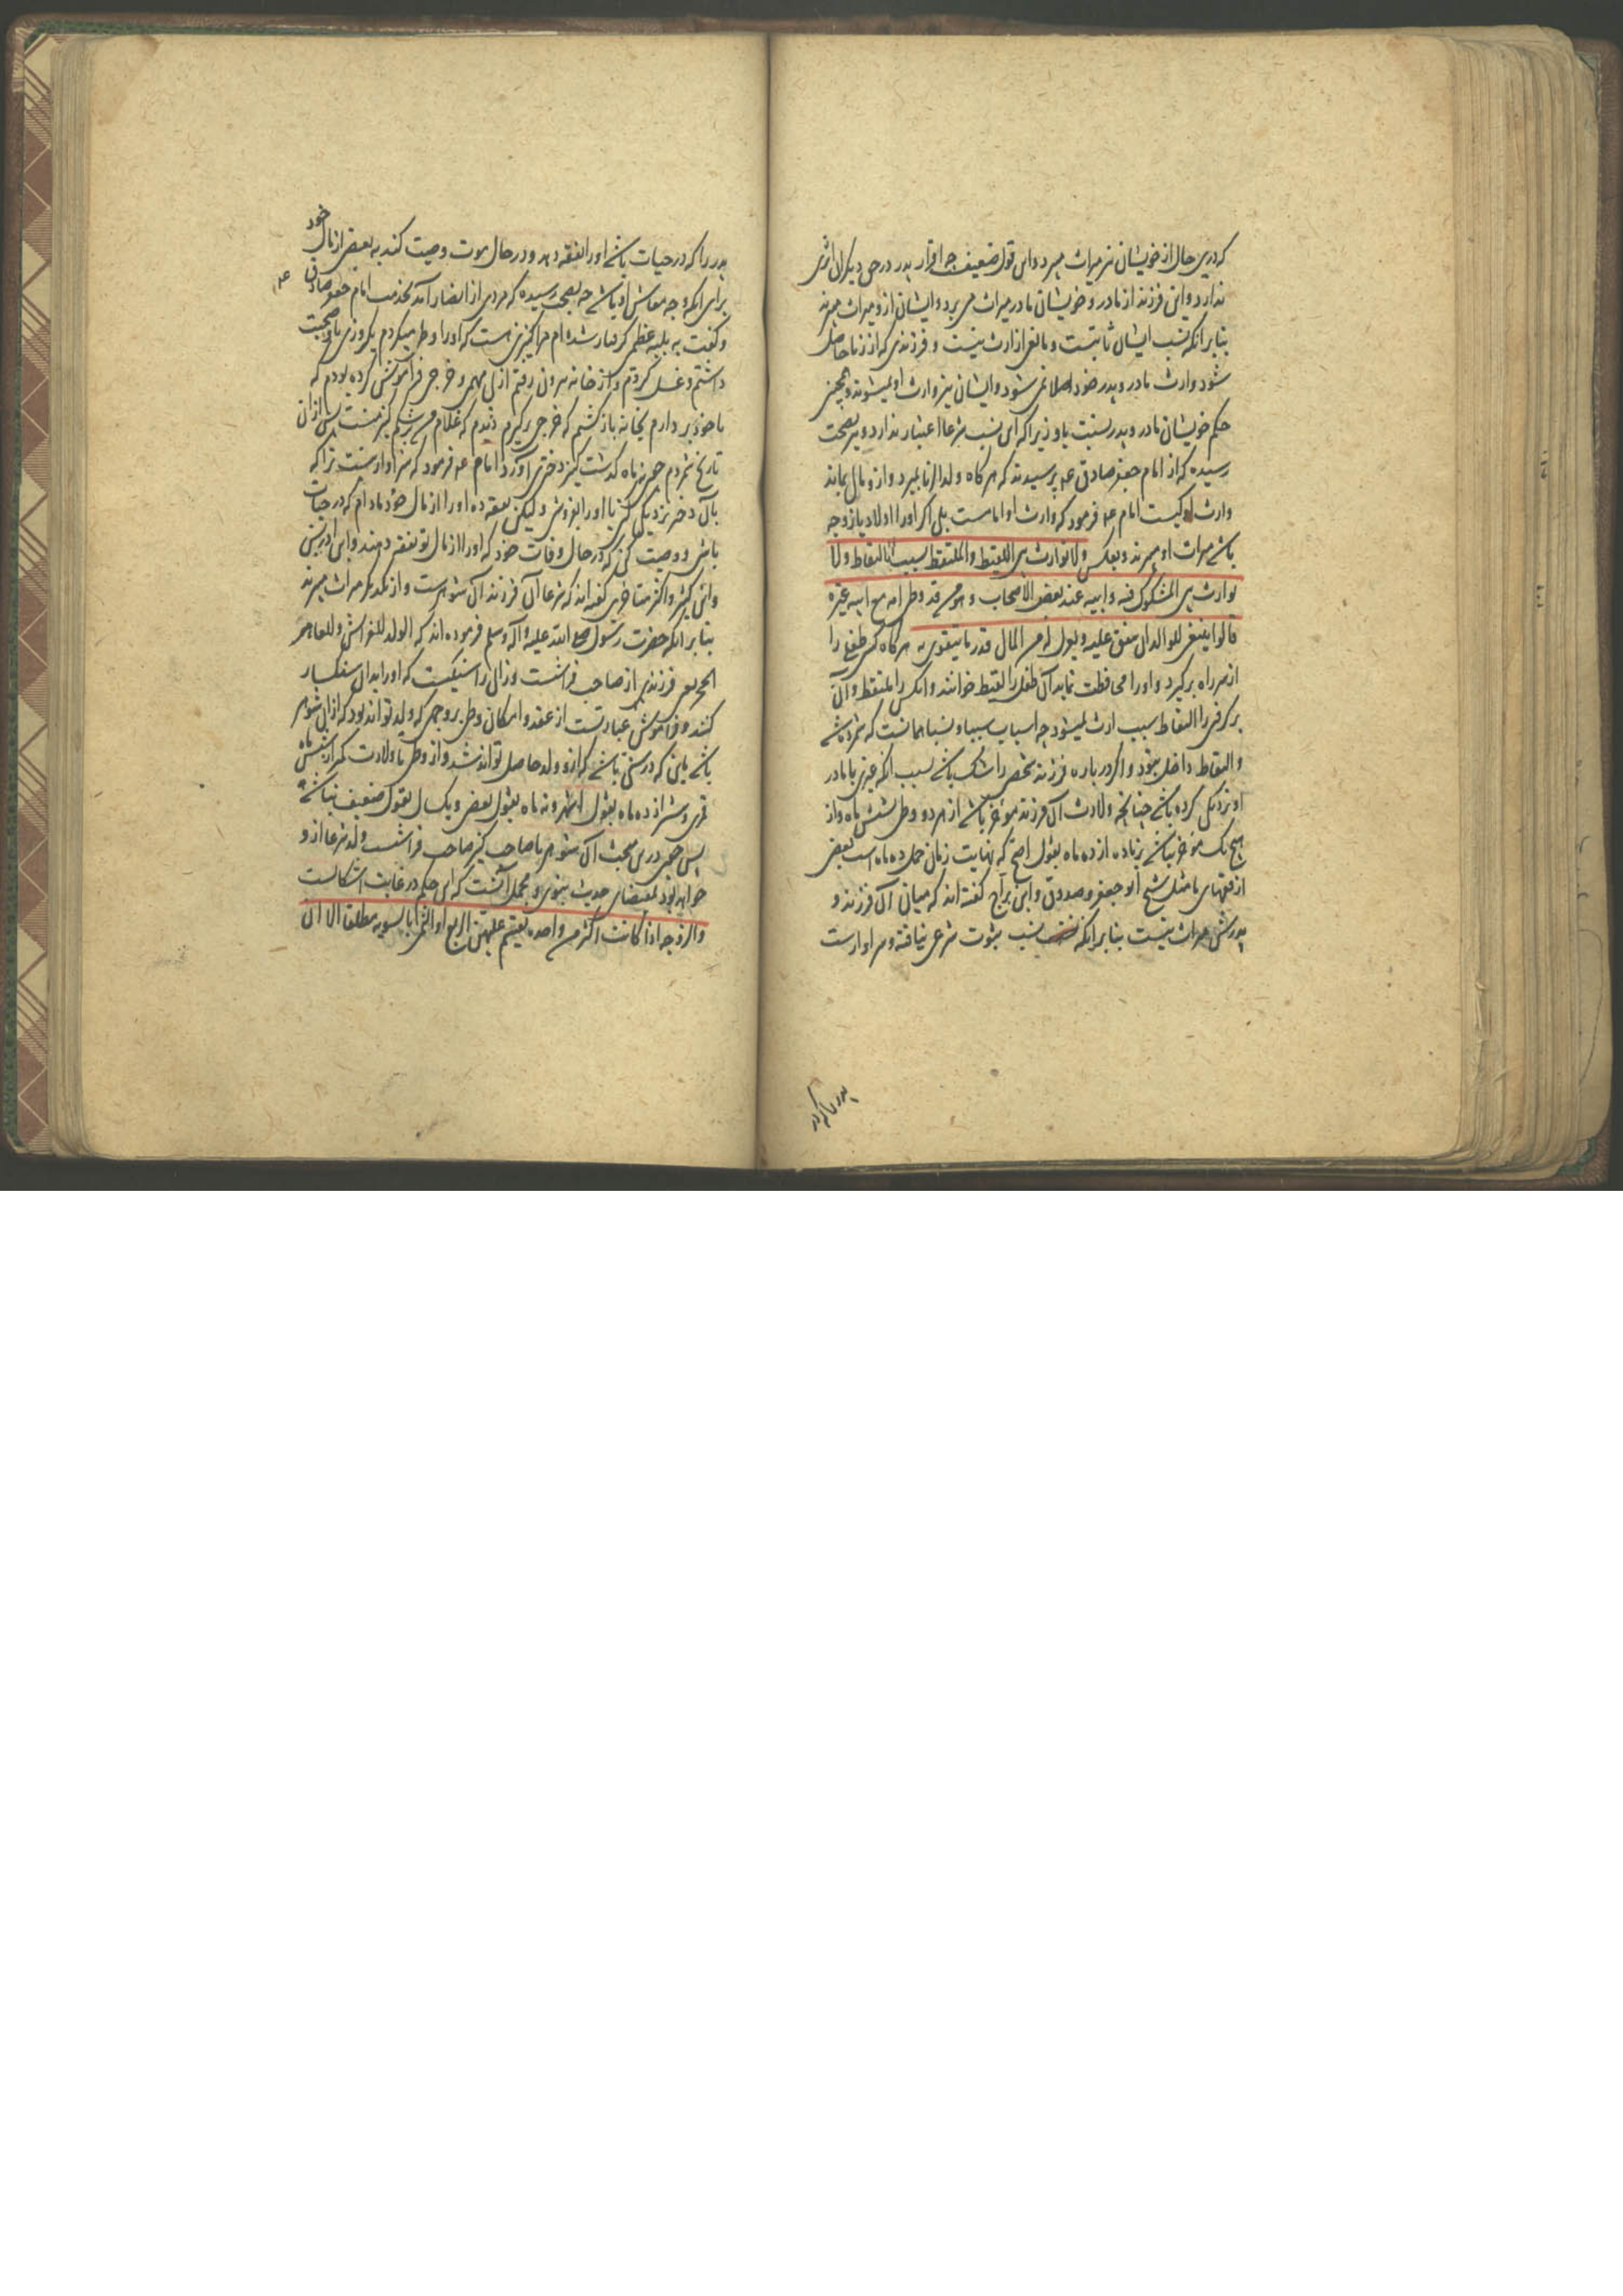 که درین حال از خویشان نیز میراث میبرد و این قول ضعیف چه اقرار پدر در حق دیگران اثری
ندارد و این فرزند از مادر و خویشان مادر میراث می برد و ایشان ازو میراث میبرند
بنا بر آنکه نسب ایشان ثابتست و مانع از ارث نیست و فرزندی که از زنا حاصل
شود وارث مادر و پدر خود اصلا نمی شود و ایشان نیز وارث او نمیشوند و همچنین
حکم خویشان مادر و پدر نسبت باو زیرا که این نسب شرعا اعتبار ندارد و بصحت
رسیده که از امام جعفر صادق عم پرسیدند که هر گاه ولد الزنا بمیرد و ازو مال بماند
وارث او کیست امام عم فرمود که وارث او امامست بلی اگر او را اولاد یا زوجه
باشد میراث او میبرند و بعکس ولا توارث بین اللقیط والملتقط بسبب الالتقاط ولا
توارث بین المشکوک فیه وابیه عند بعض الاصحاب وهو من قد وطی امه مع ابیه غیره
قالوا ینبغی للوالد ان ینفق علیه ویعزل له من المال قدر ما یتقوی به هر گاه کسی طفلی را
از سر راه برگیرد و او را محافظت نماید آن طفل را لقیط خوانند و آنکس را ملتقط و آن
برگرفتن را التقاط سبب ارث نمیشود چه اسباب سببا و نسبا همانست که شمرده شد
و التقاط داخل نبود و اگر در باره فرزند شخص را شک باشد بسبب آنکه غیری با مادر
او نزدیکی کرده باشد چنانچه ولادت آن فرزند مؤخر باشد از هر دو وطی بشش ماه و از
هیچ یک مؤخر نباشد زیاده از ده ماه بقول اصح که نهایت زمان حمل ده ماه است بعضی
از فقهای ما مثل شیخ ابو جعفر و صدوق و ابن براج گفته اند که میان آن فرزند و
پدرش میراث نیست بنا بر آنکه نسب بثبوت شرعی نیافته و سزاوارست
پدر را که در
پدر را که در حیات باشد او را نفقه دهد و در حال موت وصیت کند به بعضی از مال خود
برای آنکه وجه معاش او باشد چه بصحت رسیده که مردی از انصار آمد بخدمت امام جعفر صادق عم
و گفت به بلیه عظمی گرفتار شده ام مرا کنیزی هست که او را وطی میکردم یکروزی با او صحبت
داشتم و غسل کردم و از خانه بیرون رفتم از پی مهمی و خرجی فراموش کرده بودم که
با خود بردارم بخانه باز گشتم که خرجی برگیرم دیدم که غلام من بر شکم کنیز منست پس از آن
تاریخ شمردم چون نه ماه گذشت کنیز دختری آورد امام عم فرمود که سزاوار نیست ترا که
بآن دختر نزدیکی کنی یا او را بفروشی و لیکن نفقه ده او را از مال خود مادام که در حیات
باشی و وصیت کنی که در حال وفات خود که او را از مال تو نفقه دهند و ابن ادریس
و ابن کثیر و اکثر متاخرین گفته اند که شرعا آن فرزند آن شوهرست و از یکدیگر میراث میبرند
بنا بر آنکه حضرت رسول صلی الله علیه و آله وسلم فرموده اند که الولد للفراش وللعاهر
الحجر یعنی فرزند از صاحب فراشست و زانی را سنگیست که او را بدان سنگسار
کنند و فراش عبارتست از عقد و امکان وطی بر وجهی که ولد تواند بود که از آن شوهر
باشد باین که در سنی باشد که ازو ولد حاصل تواند شد و از وطی تا ولادت کمتر از شش ماه
قمری و بیشتر از ده ماه بقول اشهر و نه ماه بقول بعضی و یک سال بقول ضعیف نباشد
پس چون درین مبحث آن شوهر یا صاحب کنیز صاحب فراشست ولد شرعا ازو
خواهد بود بمقتضای حدیث نبوی و مجملا آنست که این حکم در غایت اشکالست
والزوجه اذا کانت اکثر من واحده یقسم علیهن الربع او الثمن بالسویه مطلقا الا ان